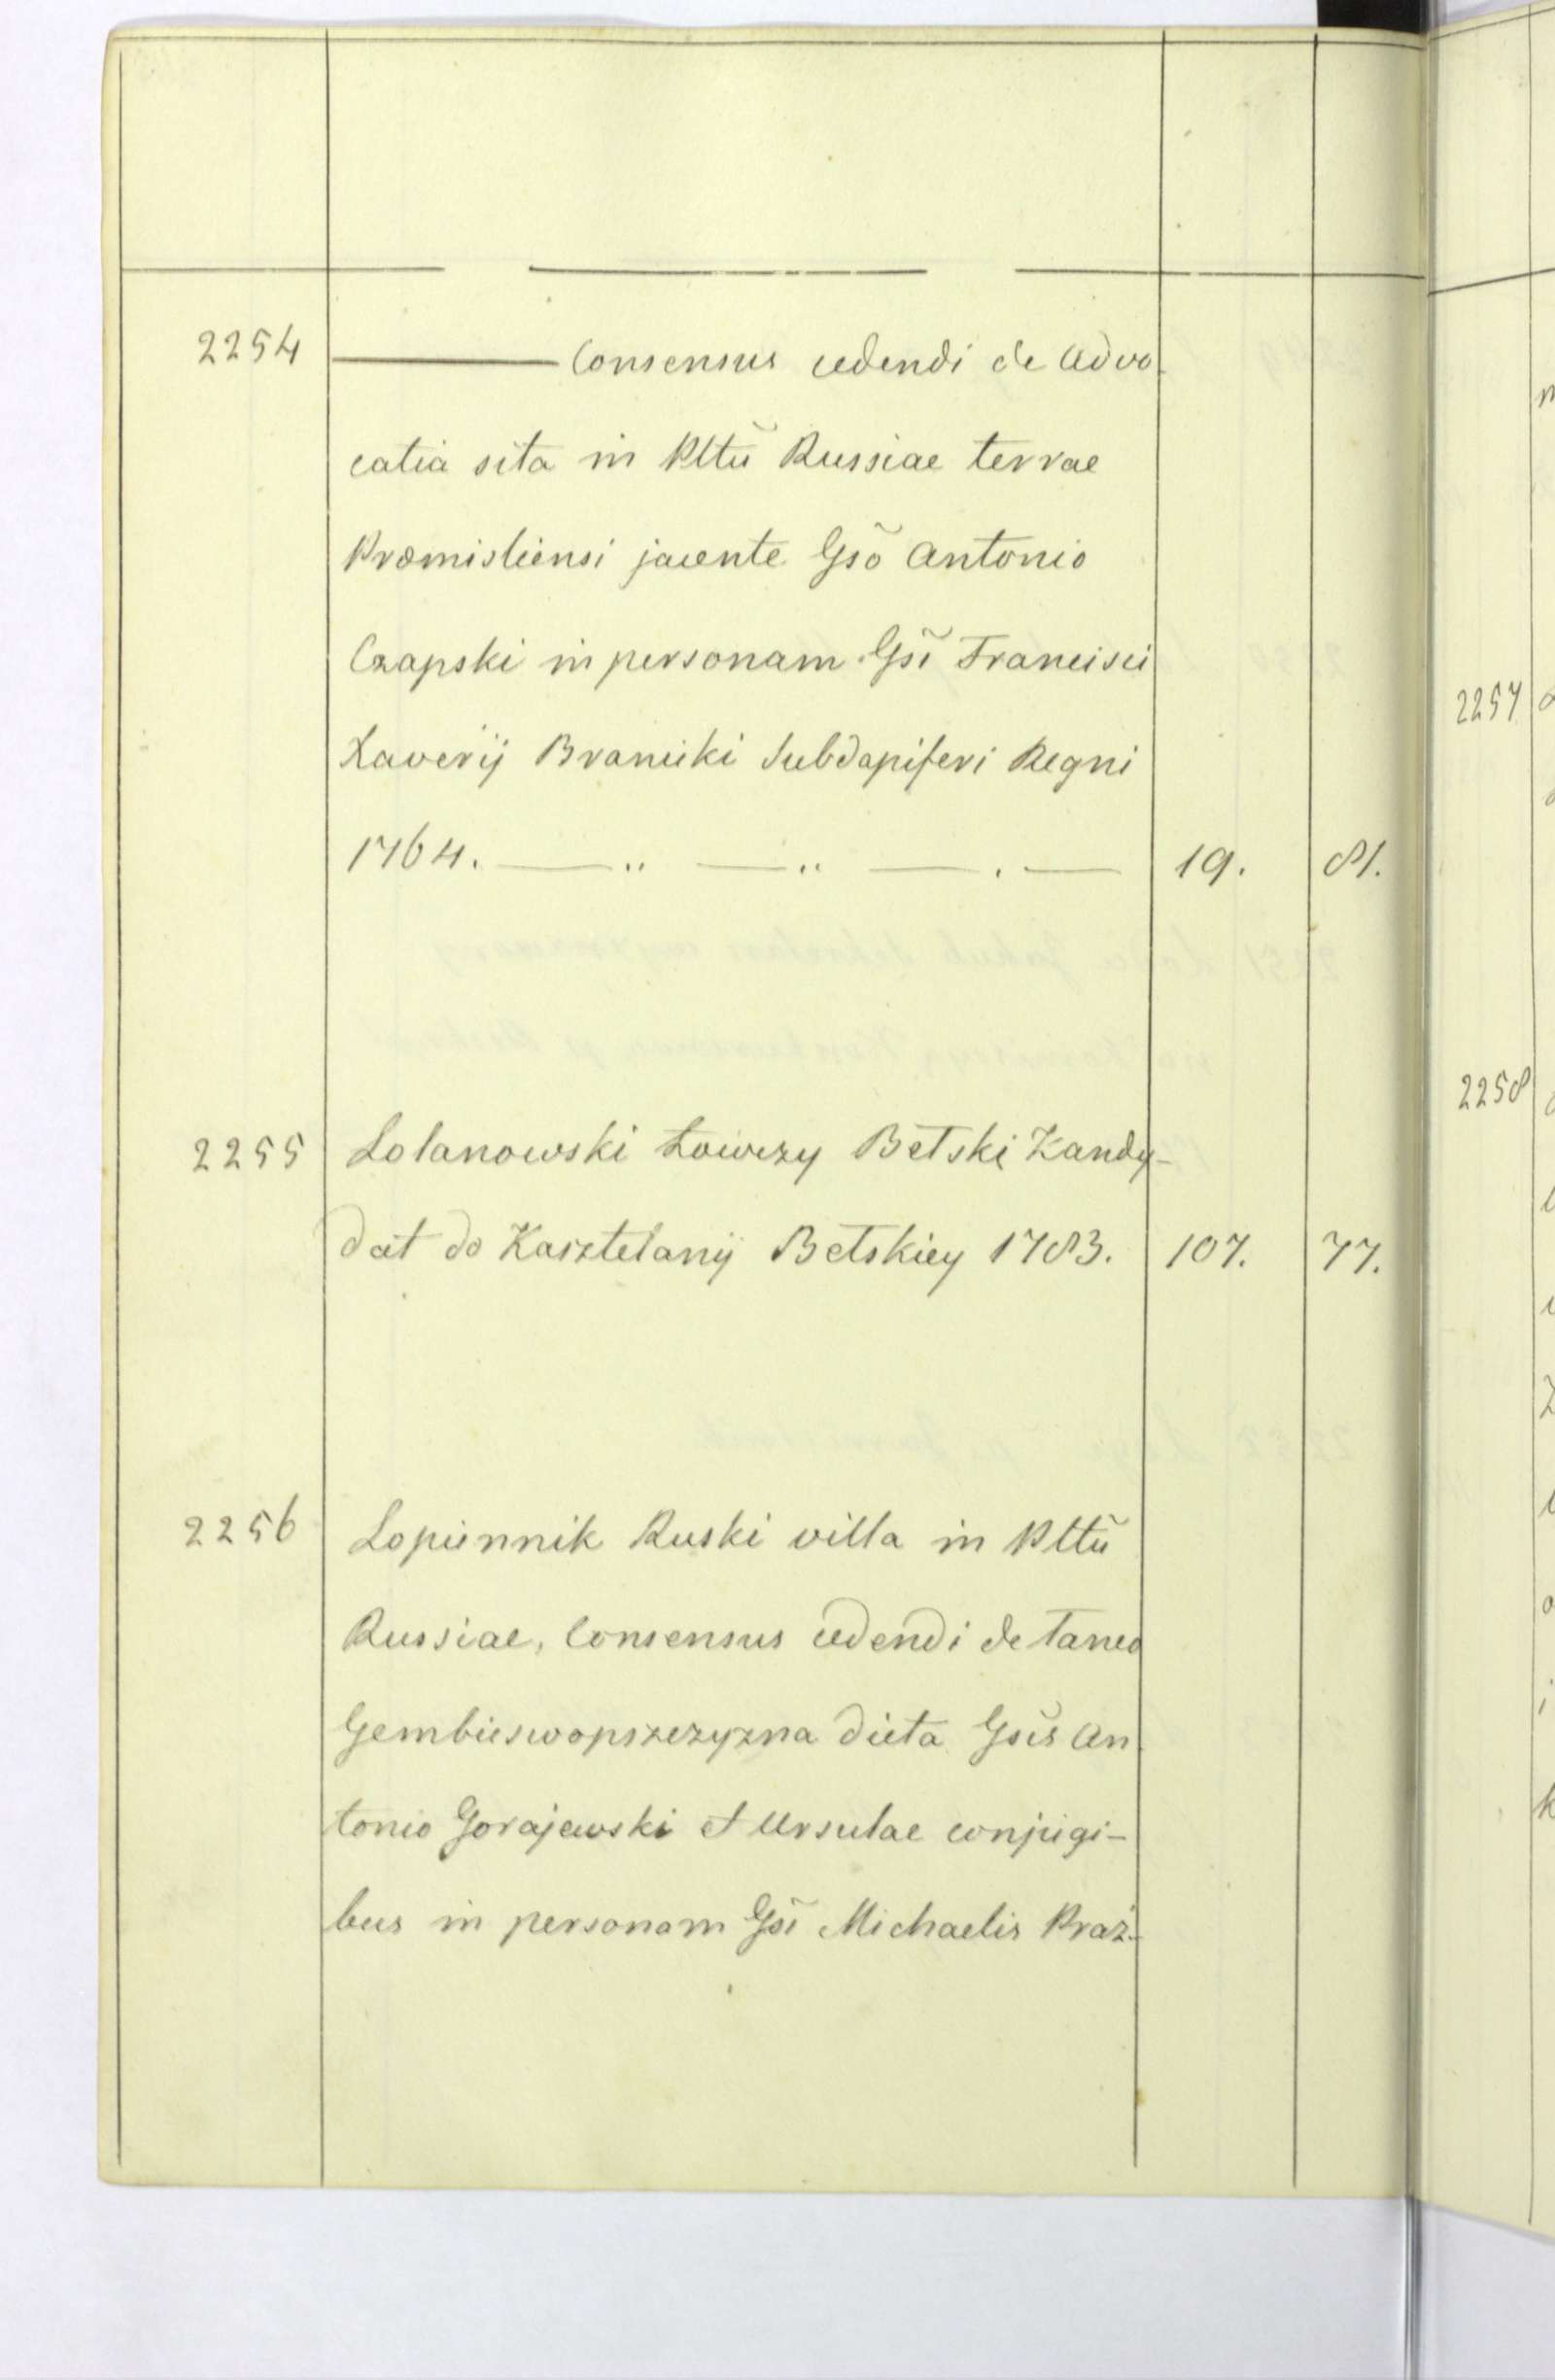 2254 ——— Consensus cedendi de Advo-
catia sita in Pltũ Russiae terrae
Premisliensi jacente Gsõ Antonio
Czapski in personam Gsĩ Francisci
Xaverij Branicki Subdapiferi Regni
1764. — „ — „ — . — 19. 81.
2255 Lolanowski Łowczy Bełski Kandy-
dat do Kasztelanij Bełskiey 1783. 107. 77.
2256 Lopiennik Ruski villa in Pltũ
Russiae, Consensus cedendi de Laneo
Gembieswopszczyzna dicta Gsĩs An-
tonio Gorajewski et Ursulae conjugi-
bus in personam Gsĩ Michaelis Praż-
2257
2258